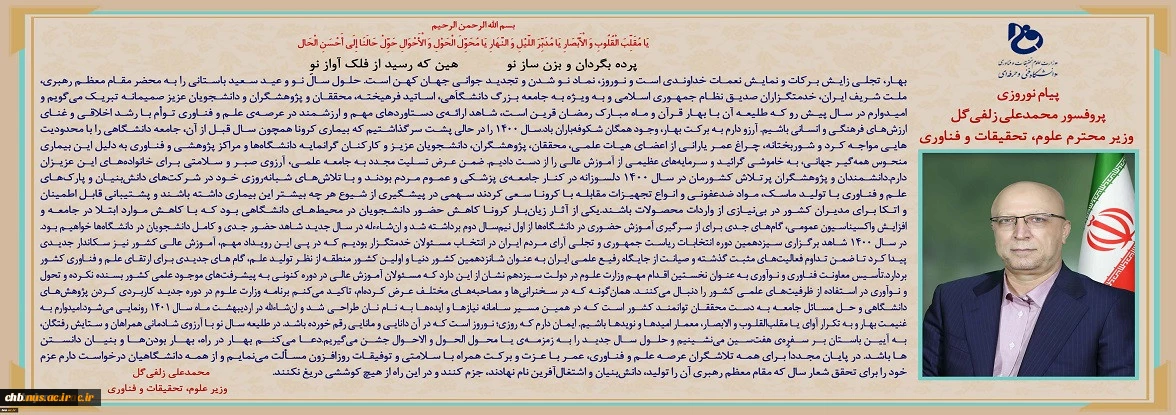 بسم الله الرحمن الرحیم
یَا مُقَلِّبَ الْقُلُوبِ وَ الْأَبْصَارِ یَا مُدَبِّرَ اللَّیْلِ وَ النَّهَارِ یَا مُحَوِّلَ الْحَوْلِ وَ الْأَحْوَالِ حَوِّلْ حَالَنَا إِلَى أَحْسَنِ الْحَالِ
پرده بگردان و بزن ساز نو هین که رسید از فلک آواز نو
بهار، تجلی زایش برکات و نمایش نعمات خداوندی است و نوروز، نماد نو شدن و تجدید جوانی جهان کهن است. حلول سال نو و عید سعید باستانی را به محضر مقام معظم رهبری،
ملت شریف ایران، خدمتگزاران صدیق نظام جمهوری اسلامی و به ویژه به جامعه بزرگ دانشگاهی، اساتید فرهیخته، محققان و پژوهشگران و دانشجویان عزیز صمیمانه تبریک می‌گویم و
امیدوارم در سال پیش رو که طلیعه آن با بهار قرآن و ماه مبارک رمضان قرین است، شاهد ارائه‌ی دستاوردهای مهم و ارزشمند در عرصه‌ی علم و فناوری توأم با رشد اخلاقی و غنای
ارزش‌های فرهنگی و انسانی باشیم. آرزو دارم به برکت بهار، وجود همگان شکوفه‌باران باد.سال ۱۴۰۰ را در حالی پشت سر گذاشتیم که بیماری کرونا همچون سال قبل از آن، جامعه دانشگاهی را با محدودیت
هایی مواجه کرد و شوربختانه، چراغ عمر یارانی از اعضای هیات علمی، محققان، پژوهشگران، دانشجویان عزیز و کارکنان گرانمایه دانشگاه‌ها و مراکز پژوهشی و فناوری به دلیل این بیماری
منحوس همه‌گیر جهانی، به خاموشی گرائید و سرمایه‌های عظیمی از آموزش عالی را از دست دادیم. ضمن عرض تسلیت مجدد به جامعه علمی، آرزوی صبر و سلامتی برای خانواده‌های این عزیزان
دارم.دانشمندان و پژوهشگران پرتلاش کشورمان در سال ۱۴۰۰ دلسوزانه در کنار جامعه‌ی پزشکی و عموم مردم بودند و با تلاش‌های شبانه‌روزی خود در شرکت‌های دانش‌بنیان و پارک‌های
علم و فناوری با تولید ماسک، مواد ضدعفونی و انواع تجهیزات مقابله با کرونا سعی کردند سهمی در پیشگیری از شیوع هر چه بیشتر این بیماری داشته باشند و پشتیبانی قابل اطمینان
و اتکا برای مدیران کشور در بی‌نیازی از واردات محصولات باشند.یکی از آثار زیان‌بار کرونا کاهش حضور دانشجویان در محیط‌های دانشگاهی بود که با کاهش موارد ابتلا در جامعه و
افزایش واکسیناسیون عمومی، گام‌های جدی برای از سرگیری آموزش حضوری در دانشگاه‌ها از اول نیم‌سال دوم برداشته شد و ان‌شاءالله در سال جدید شاهد حضور جدی و کامل دانشجویان در دانشگاه‌ها خواهیم بود.
در سال ۱۴۰۰ شاهد برگزاری سیزدهمین دوره انتخابات ریاست جمهوری و تجلی آرای مردم ایران در انتخاب مسئولان خدمتگزار بودیم که در پی این رویداد مهم، آموزش عالی کشور نیز سکاندار جدیدی
پیدا کرد تا ضمن تداوم فعالیت‌های مثبت گذشته و صیانت از جایگاه رفیع علمی ایران به عنوان شانزدهمین کشور دنیا و اولین کشور منطقه از نظر تولید علم، گام های جدیدی برای ارتقای علم و فناوری کشور
بردارد.تأسیس معاونت فناوری و نوآوری به عنوان نخستین اقدام مهم وزارت علوم در دولت سیزدهم نشان از این دارد که مسئولان آموزش عالی در دوره کنونی به پیشرفت‌های موجود علمی کشور بسنده نکرده و تحول
و نوآوری در استفاده از ظرفیت‌های علمی کشور را دنبال می‌کنند. همان‌گونه که در سخنرانی‌ها و مصاحبه‌های مختلف عرض کرده‌ام، تاکید می‌کنم برنامه وزارت علوم در دوره جدید کاربردی کردن پژوهش‌های
دانشگاهی و حل مسائل جامعه به دست محققان توانمند کشور است که در همین مسیر سامانه نیازها و ایده‌ها به نام نان طراحی شد و ان‌شاالله در اردیبهشت ماه سال ۱۴۰۱ رونمایی می‌شود.امیدوارم به
غنیمت بهار و به تکرار آوای یا مقلب‌القلوب و الابصار، معمار امیدها و نویدها باشیم. ایمان دارم که روزی؛ نوروز است که در آن دانایی و مانایی رقم خورده باشد. در طلیعه سال نو با آرزوی شادمانی همراهان و ستایش رفتگان،
به آیین باستان بر سفره‌ی هفت‌سین می‌نشینیم و حلول سال جدید را به زمزمه‌ی یا محول الحول و الاحوال جشن می‌گیریم.دعا می‌کنم بهار در راه، بهار بودن‌ها و بنیان دانستن
ها باشد. در پایان مجددا برای همه تلاشگران عرصه علم و فناوری، عمر با عزت و برکت همراه با سلامتی و توفیقات روزافزون مسألت می‌نمایم و از همه دانشگاهیان درخواست دارم عزم
خود را برای تحقق شعار سال که مقام معظم رهبری آن را تولید، دانش‌بنیان و اشتغال‌آفرین نام نهادند، جزم کنند و در این راه از هیچ کوششی دریغ نکنند.
محمدعلی زلفی‌گل
وزیر علوم، تحقیقات و فناوری
وزارت علوم، تحقیقات و فناوری
دانشگاه فنی و حرفه‌ای
پیام نوروزی
پروفسور محمدعلی زلفی گل
وزیر محترم علوم، تحقیقات و فناوری